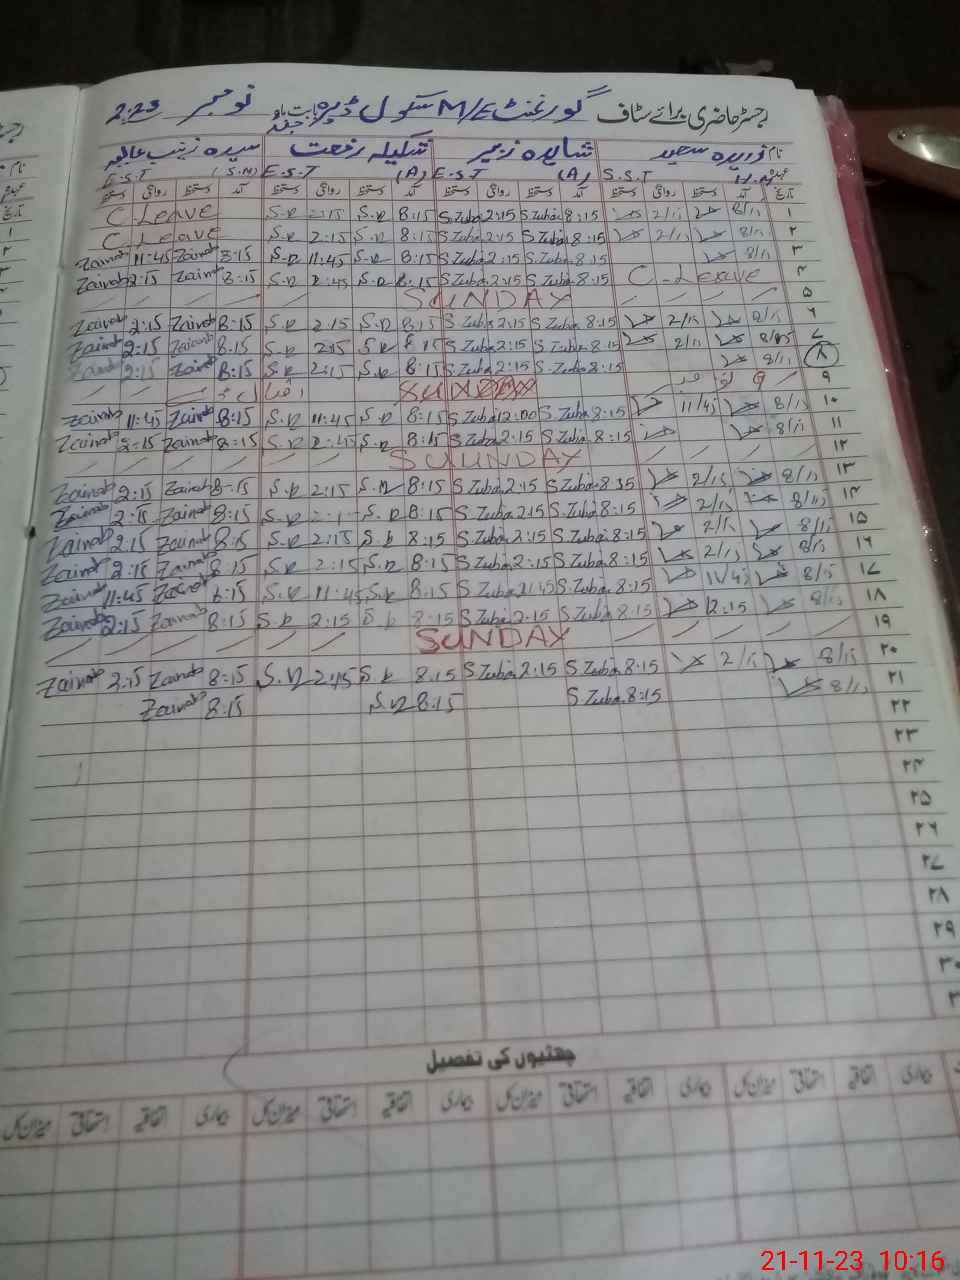 رجسٹر حاضری برائے سٹاف گورنمنٹ M/E سکول ڈیرہ بابت ماہ نومبر 2023
نام فریدہ سعید شاہدہ زبیر شکیلہ رفعت سیدہ زینب عالیہ
عہدہ H.M S.S.T (A) E.S.T (A) E.S.T (S.M) E.S.T
تاریخ آمد دستخط روانگی دستخط آمد دستخط روانگی دستخط آمد دستخط روانگی دستخط آمد دستخط روانگی دستخط
C.Leave S.R 2:15 S.R 8:15 S.Zubai 2:15 S.Zubai 8:15 2/15 8/15 ١
C.Leave S.R 2:15 S.R 8:15 S.Zubai 2:15 S.Zubai 8:15 2/15 8/15 ٢
Zainab 11:45 Zainab 8:15 S.R 11:45 S.R 8:15 S.Zubai 2:15 S.Zubai 8:15 8/15 ٣
Zainab 2:15 Zainab 8:15 S.R 2:45 S.R 8:15 S.Zubai 2:15 S.Zubai 8:15 C-Leave ٤
SUNDAY ۵
Zainab 2:15 Zainab 8:15 S.R 2:15 S.R 8:15 S.Zubai 2:15 S.Zubai 8:15 2/15 8/15 ۶
Zainab 2:15 Zainab 8:15 S.R 2:15 S.R 8:15 S.Zubai 2:15 S.Zubai 8:15 2/15 8/15 ۷
Zainab 2:15 Zainab 8:15 S.R 2:15 S.R 8:15 S.Zubai 2:15 S.Zubai 8:15 8/15 ۸
اقبال ڈے SUNDAY 9 نومبر ۹
Zainab 11:45 Zainab 8:15 S.R 11:45 S.R 8:15 S.Zubai 12:00 S.Zubai 8:15 11/45 8/15 ١٠
Zainab 2:15 Zainab 8:15 S.R 2:45 S.R 8:15 S.Zubai 2:15 S.Zubai 8:15 8/15 ١١
SUUNDAY ١٢
Zainab 2:15 Zainab 8:15 S.R 2:15 S.R 8:15 S.Zubai 2:15 S.Zubai 8:15 2/15 8/15 ١٣
Zainab 2:15 Zainab 8:15 S.R S.R 8:15 S.Zubai 2:15 S.Zubai 8:15 2/15 8/15 ١٤
Zainab 2:15 Zainab 8:15 S.R 2:15 S.R 8:15 S.Zubai 2:15 S.Zubai 8:15 2/15 8/15 ١۵
Zainab 2:15 Zainab 8:15 S.R 2:15 S.R 8:15 S.Zubai 2:15 S.Zubai 8:15 2/15 8/15 ١۶
Zainab 11:45 Zainab 8:15 S.R 11:45 S.R 8:15 S.Zubai 11:45 S.Zubai 8:15 11/45 8/15 ١۷
Zainab 2:15 Zainab 8:15 S.R 2:15 S.R 8:15 S.Zubai 2:15 S.Zubai 8:15 12:15 8/15 ١۸
SUNDAY ١۹
Zainab 2:15 Zainab 8:15 S.R 2:45 S.R 8:15 S.Zubai 2:15 S.Zubai 8:15 2/15 8/15 ٢٠
Zainab 8:15 S.R 8:15 S.Zubai 8:15 8/15 ٢١
٢٢
٢٣
٢٤
٢۵
٢۶
٢۷
٢۸
٢۹
٣٠
چھٹیوں کی تفصیل
بیماری اتفاقیہ استحقاقی میزان کل بیماری اتفاقیہ استحقاقی میزان کل بیماری اتفاقیہ استحقاقی میزان کل
21-11-23 10:16